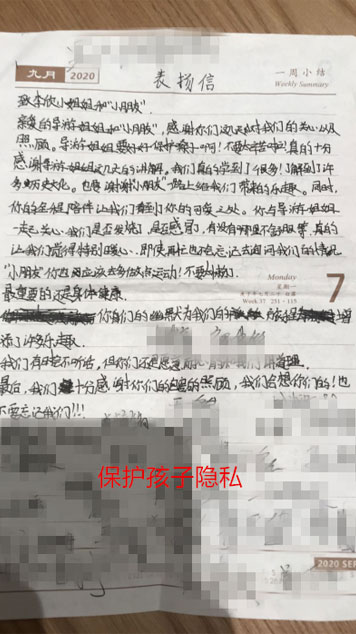 九月 2020
表扬信
一周小结
Weekly Summary
致李欣小姐姐和"小朋友"：
亲爱的导游姐姐和"小朋友"，感谢你们这几天对我们的关心以及
照顾。导游姐姐要好好保护嗓子啊！不要太辛苦啦！真的十分
感谢导游姐姐这几天的讲解。我们真的学到了很多！了解到了许
多历史文化。也要谢谢"小朋友"一路上给我们带来的乐趣。同时，
你的全程陪伴让我们看到你的可爱之处。你与导游姐姐
一起关心我们是否发烧，是否感冒，有没有哪里不舒服等，真的
让我们觉得特别暖心。即使再忙也不忘记去询问我们的情况
"小朋友"你也应该去多做点运动！不要
最重要的还是身体健康。
你们的幽默为我们的旅程增
添了许多乐趣。
我们有时不听话，但你们还是
最后，我们十分感谢你们的照顾，我们会想你们的！也
不要忘记我们!!!
Monday
星期一
Week 37 251-115
7
保护孩子隐私
2020 SE